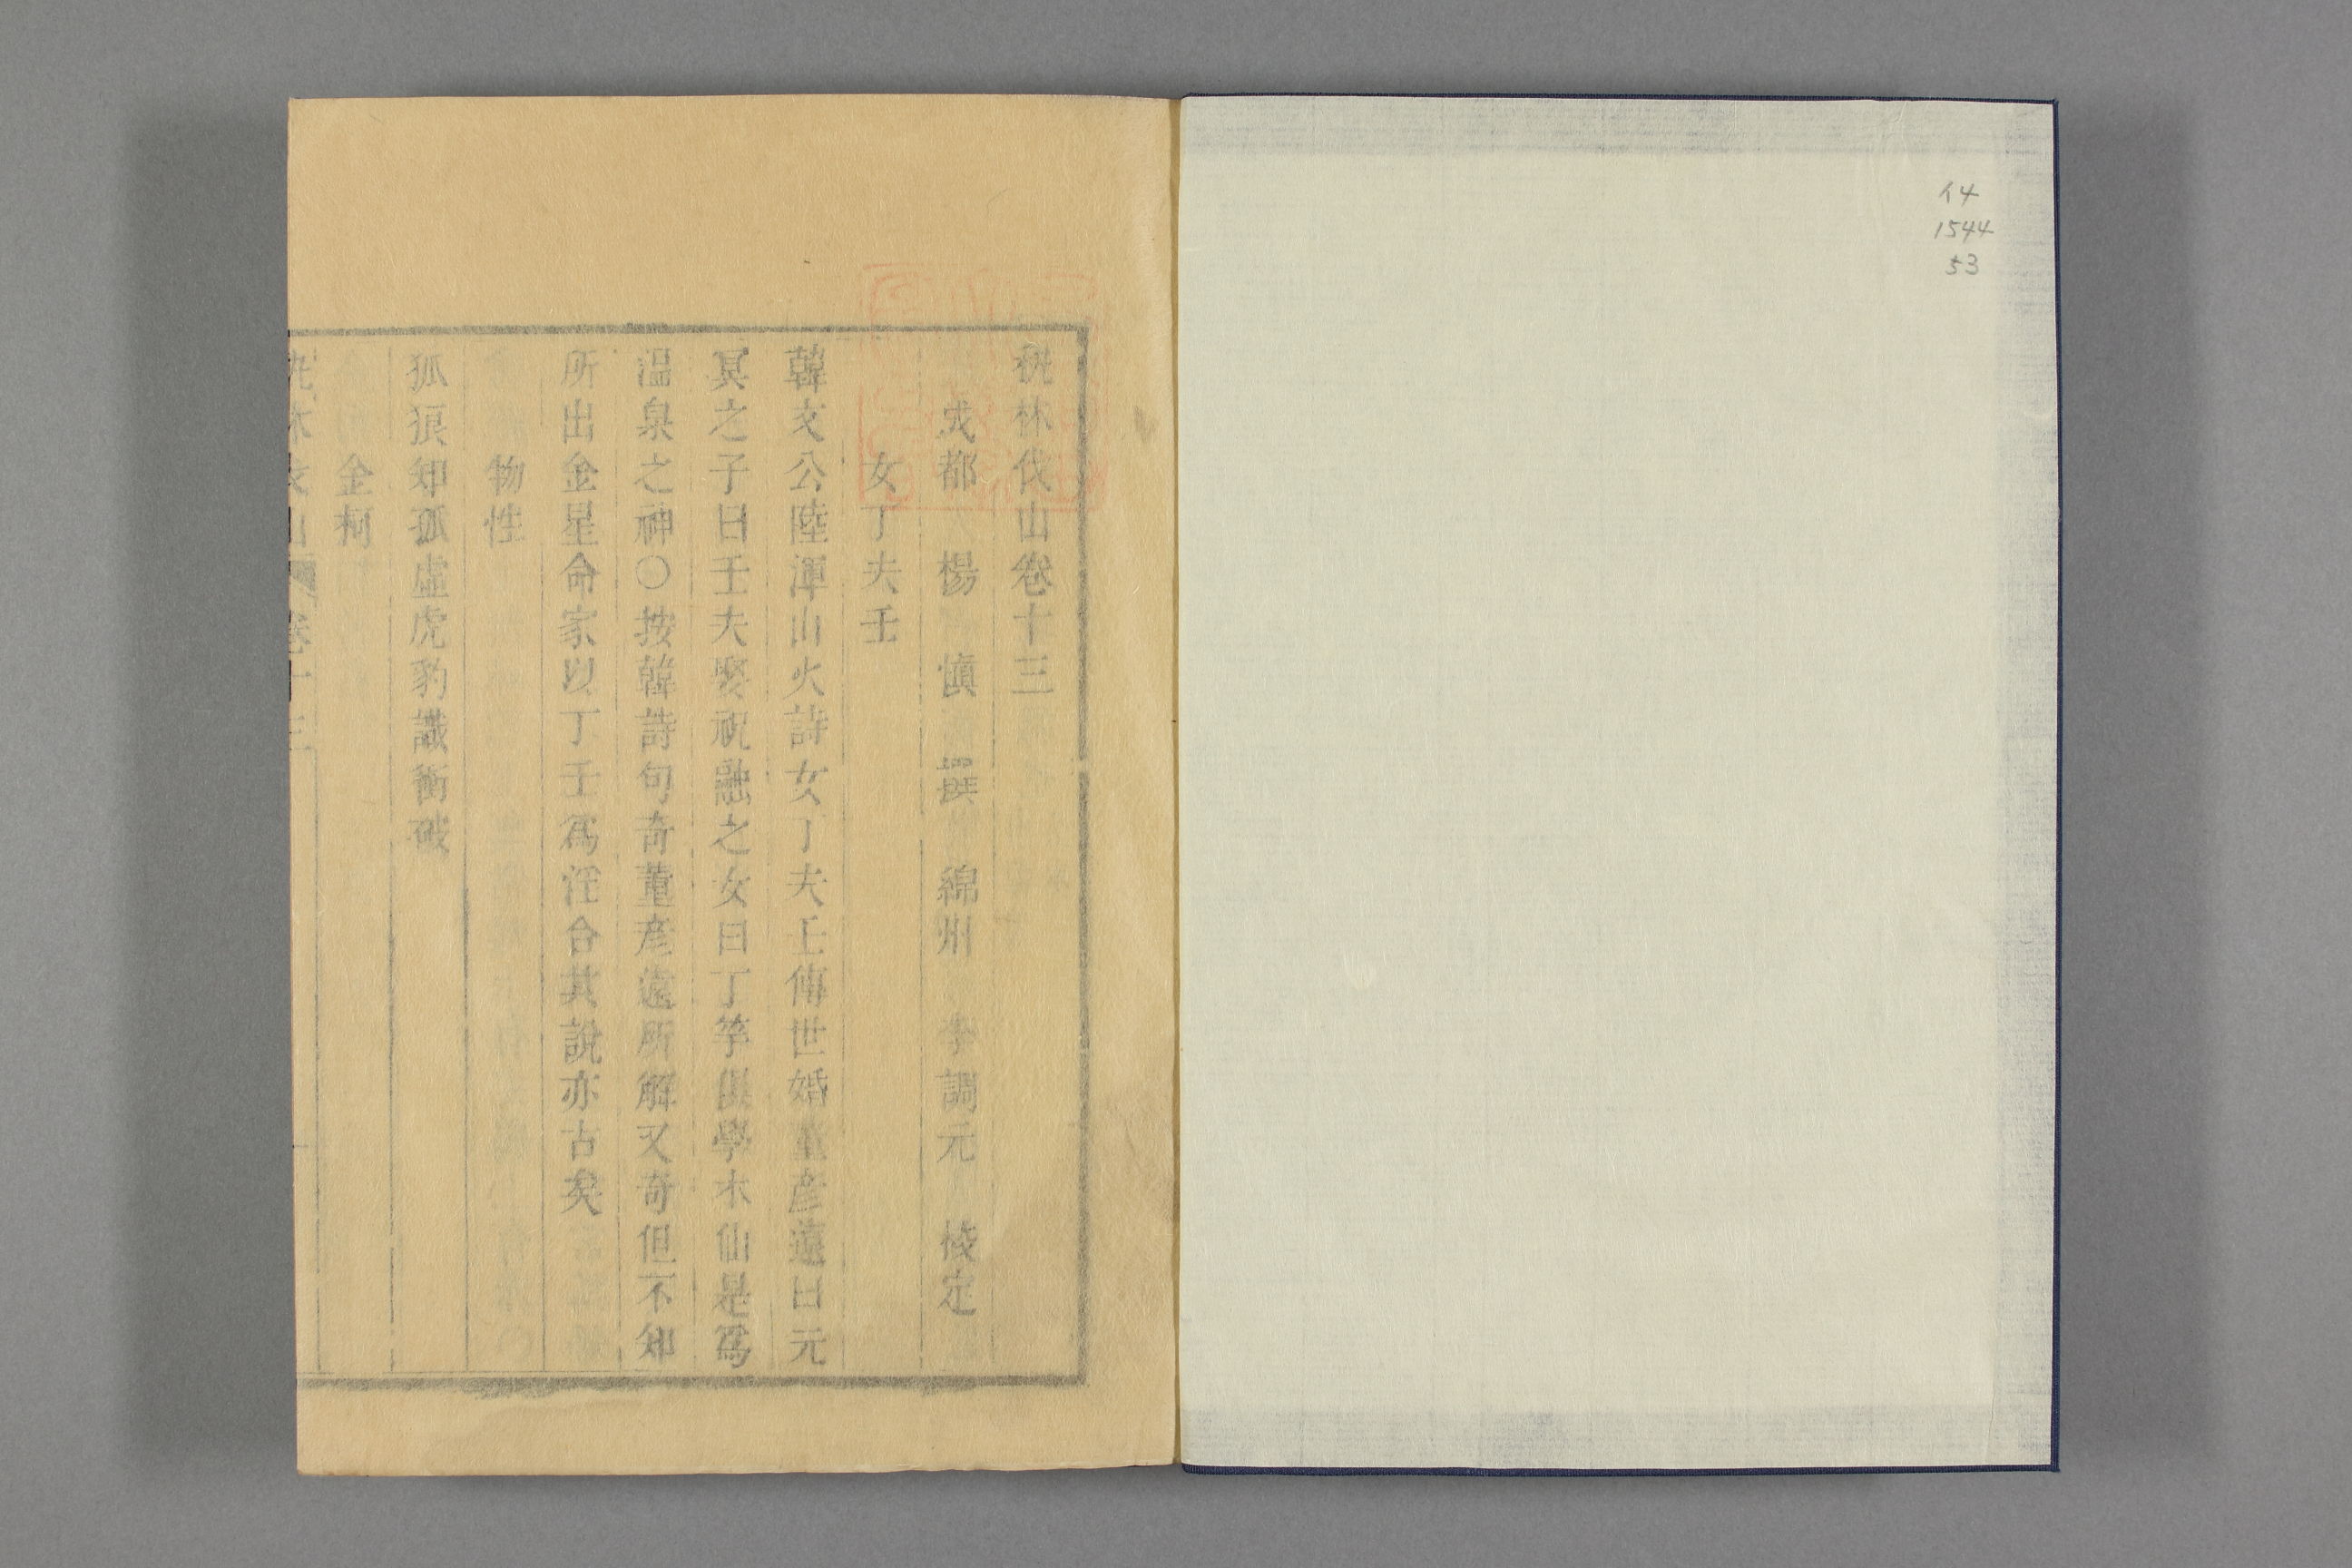 イ4
1544
53
秇林伐山卷十三
成都 楊 慎 撰 綿州 李調元 校定
女丁夫壬
韓文公陸渾山火詩女丁夫壬傳世婚董彦遠曰元
冥之子曰壬夫娶祝融之女曰丁芓俱學水仙是爲
溫泉之神〇按韓詩句奇董彦遠所解又奇但不知
所出金星命家以丁壬爲淫合其說亦古矣
物性
狐狼知孤虛虎豹識衝破
金柯
卷十三